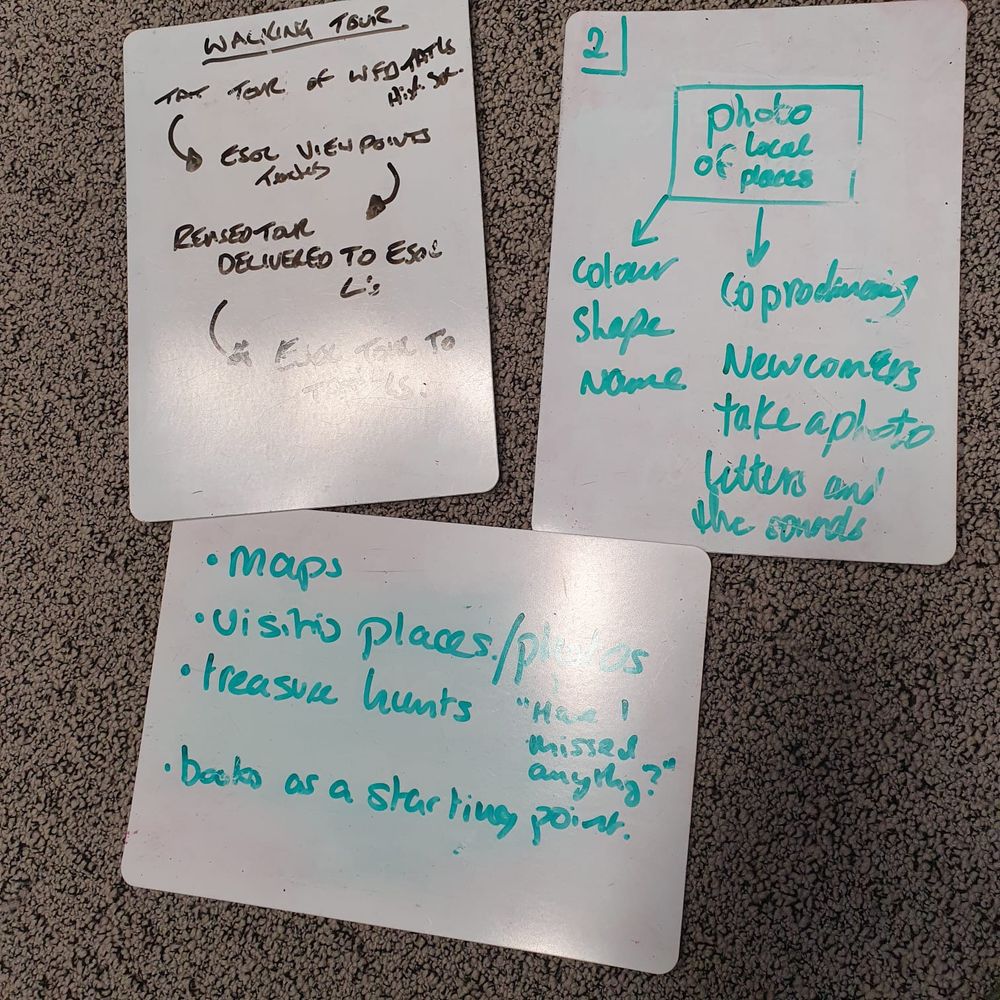 WALKING TOUR
TOUR OF WFD
Hist. Soc.
ESOL VIEWPOINTS
REVISED TOUR
DELIVERED TO ESOL
L's
ESOL TOUR TO
2
photo
of local
places
colour
shape
name
Coproducing
Newcomers
take a photo
letters and
the sounds
• Maps
• visitig places/photos
• treasure hunts
"Have I
missed
anythg?"
• books as a starting point.